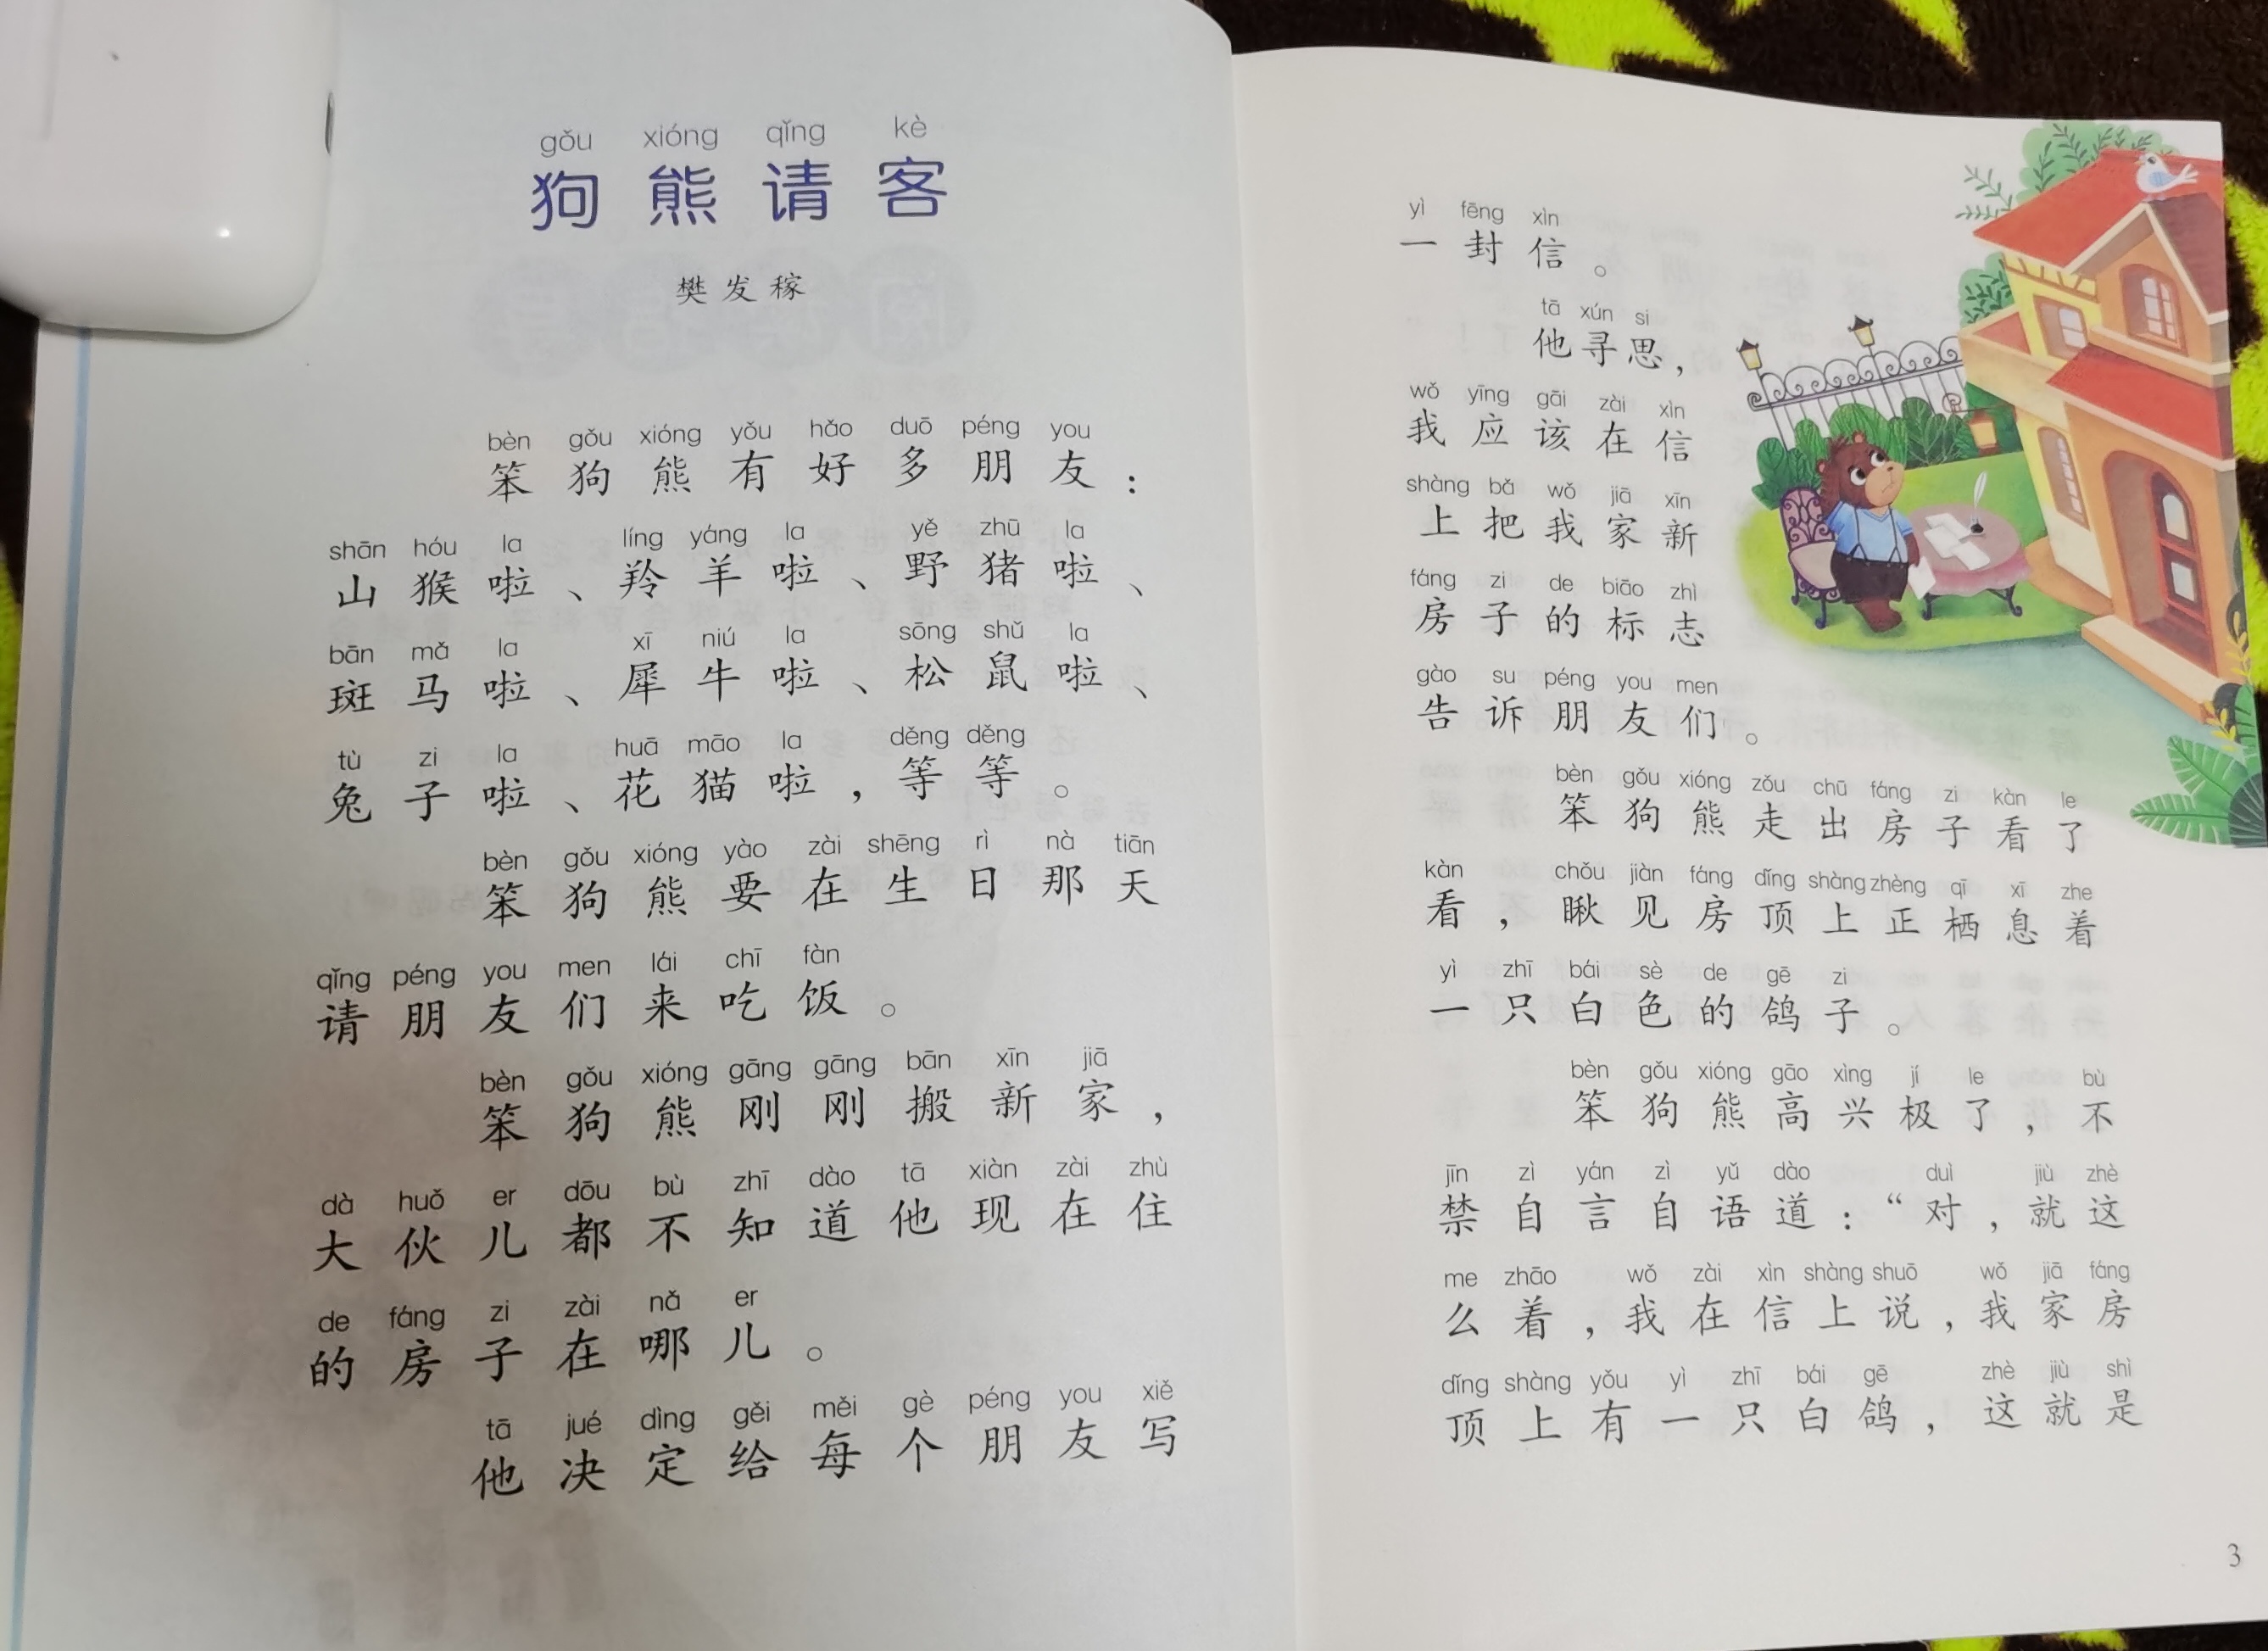 gǒu xióng qǐng kè
狗熊请客
樊发稼
bèn gǒu xióng yǒu hǎo duō péng you
笨狗熊有好多朋友：
shān hóu la líng yáng la yě zhū la
山猴啦、羚羊啦、野猪啦、
bān mǎ la xī niú la sōng shǔ la
斑马啦、犀牛啦、松鼠啦、
tù zi la huā māo la děng děng
兔子啦、花猫啦，等等。
bèn gǒu xióng yào zài shēng rì nà tiān
笨狗熊要在生日那天
qǐng péng you men lái chī fàn
请朋友们来吃饭。
bèn gǒu xióng gāng gāng bān xīn jiā
笨狗熊刚刚搬新家，
dà huǒ er dōu bù zhī dào tā xiàn zài zhù
大伙儿都不知道他现在住
de fáng zi zài nǎ er
的房子在哪儿。
tā jué dìng gěi měi gè péng you xiě
他决定给每个朋友写
yì fēng xìn
一封信。
tā xún si
他寻思，
wǒ yīng gāi zài xìn
我应该在信
shàng bǎ wǒ jiā xīn
上把我家新
fáng zi de biāo zhì
房子的标志
gào su péng you men
告诉朋友们。
bèn gǒu xióng zǒu chū fáng zi kàn le
笨狗熊走出房子看了
kàn chǒu jiàn fáng dǐng shàng zhèng qī xī zhe
看，瞅见房顶上正栖息着
yì zhī bái sè de gē zi
一只白色的鸽子。
bèn gǒu xióng gāo xìng jí le bù
笨狗熊高兴极了，不
jīn zì yán zì yǔ dào duì jiù zhè
禁自言自语道：“对，就这
me zhāo wǒ zài xìn shàng shuō wǒ jiā fáng
么着，我在信上说，我家房
dǐng shàng yǒu yì zhī bái gē zhè jiù shì
顶上有一只白鸽，这就是
3